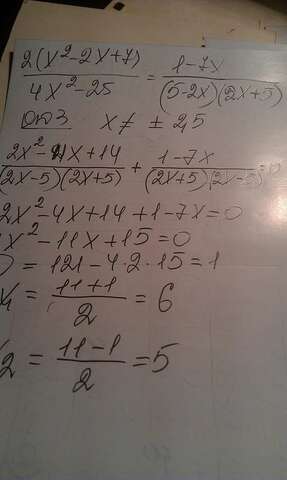 2(x²-2x+7)/4x²-25 = 1-7x/(5-2x)(2x+5)
ОДЗ x≠ ±2,5
2x²-4x+14/(2x-5)(2x+5) + 1-7x/(2x+5)(2x-5)=0
2x²-4x+14+1-7x=0
x²-11x+15=0
D = 121-4·2·15=1
x1 = 11+1/2 = 6
x2 = 11-1/2 =5